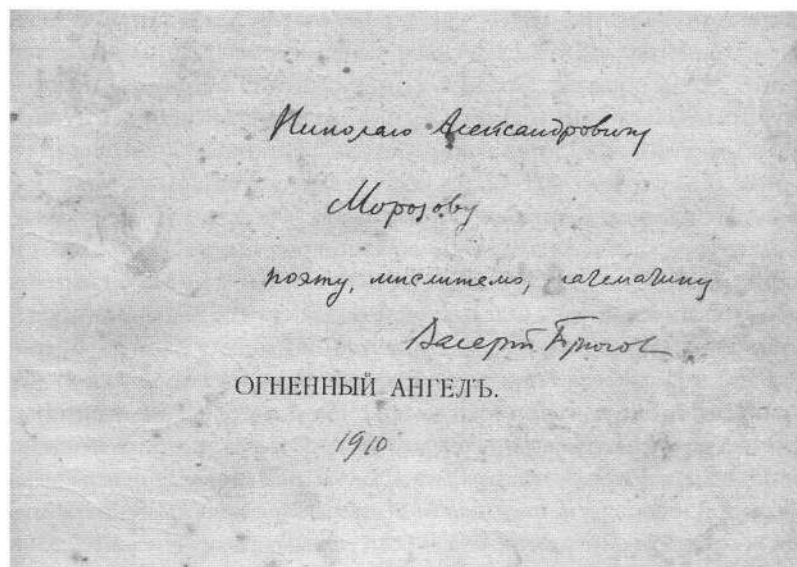 Николаю Александровичу
Морозову
поэту, мыслителю, математику
Валерий Брюсов
ОГНЕННЫЙ АНГЕЛЪ.
1910